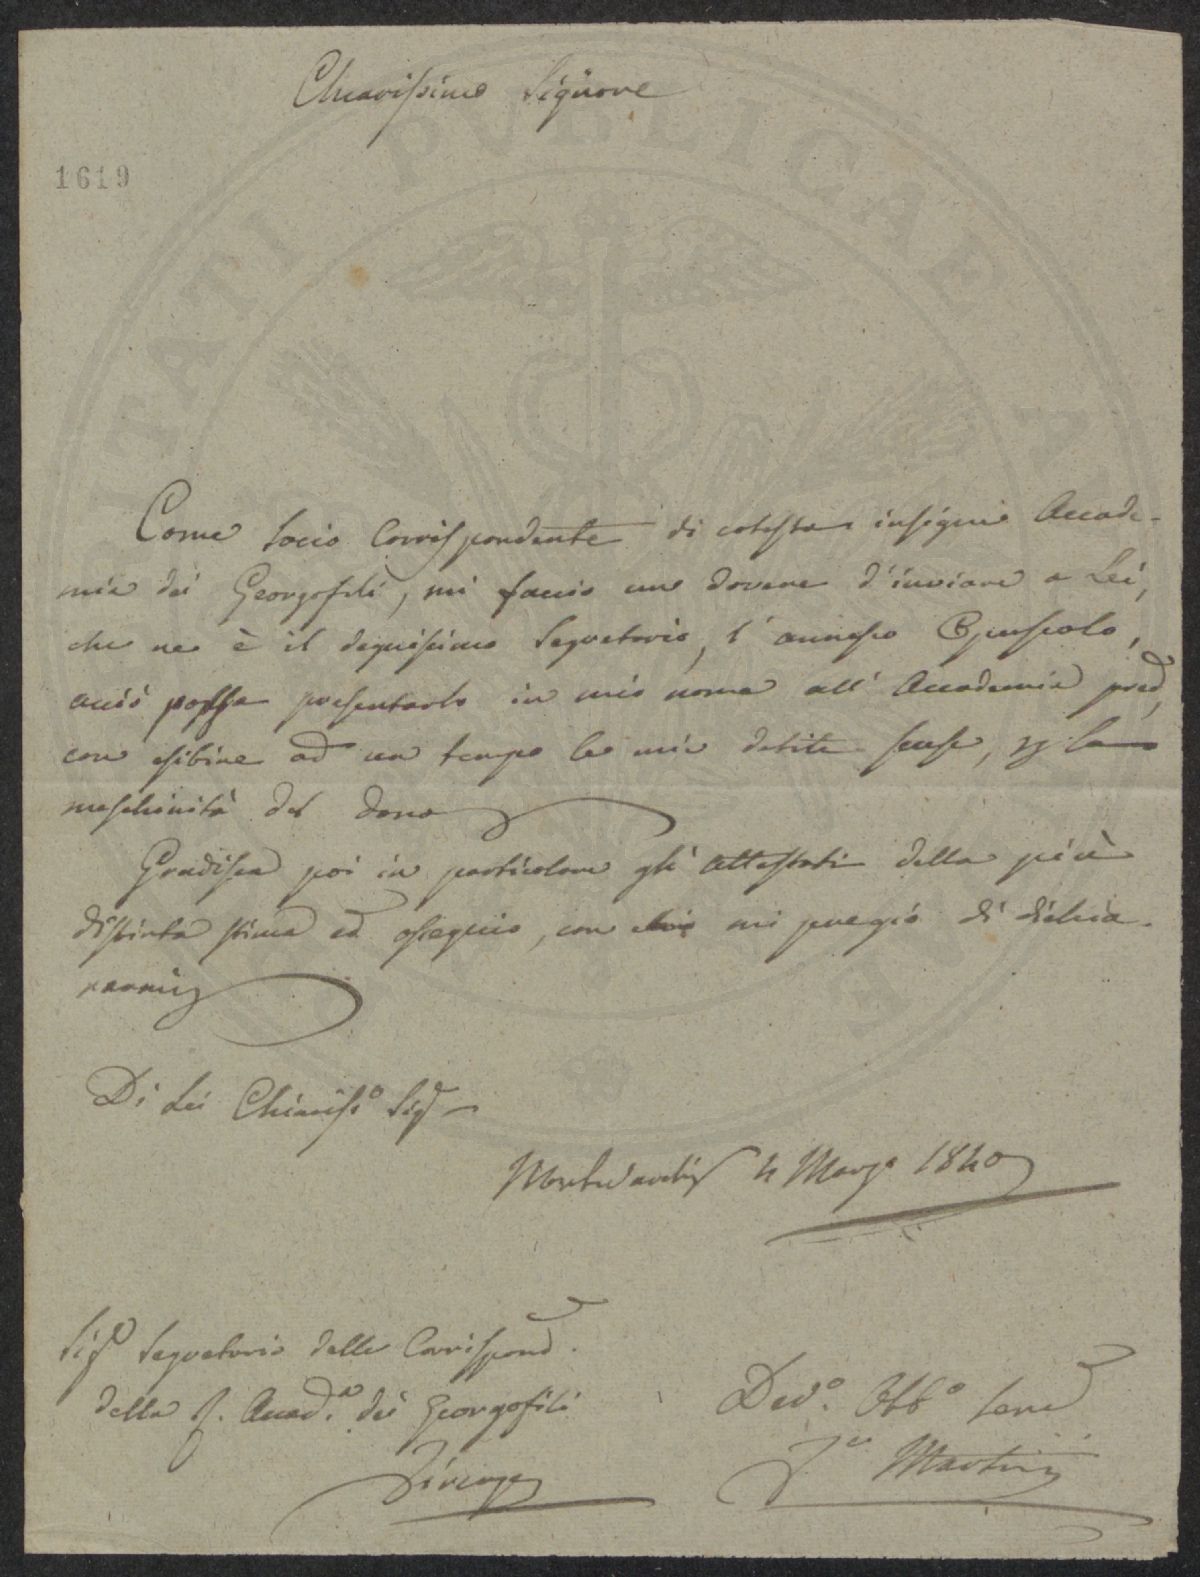 Chiarissimo Signore
1619
Come Socio Corrispondente di cotesta insigne Accade-
mia dei Georgofili, mi faccio un dovere d'inviare a Lei,
che ne è il degnissimo Segretario, l'annesso Opuscolo,
acciò possa presentarlo in mio nome all'Accademia pred.
con esibire ad un tempo le mie debite scuse, p la
meschinità del dono
Gradisca poi in particolare gli attestati della più
distinta stima ed ossequio, con mi pregio di dichia-
rarmi
Di Lei Chiariss.o Sig.
Montevarchi 4 Marzo 1840
Sig.e Segretario delle Corrispond.
della I. Accad.a dei Georgofili
Firenze
Dev.o Obb.o Serv
Martini